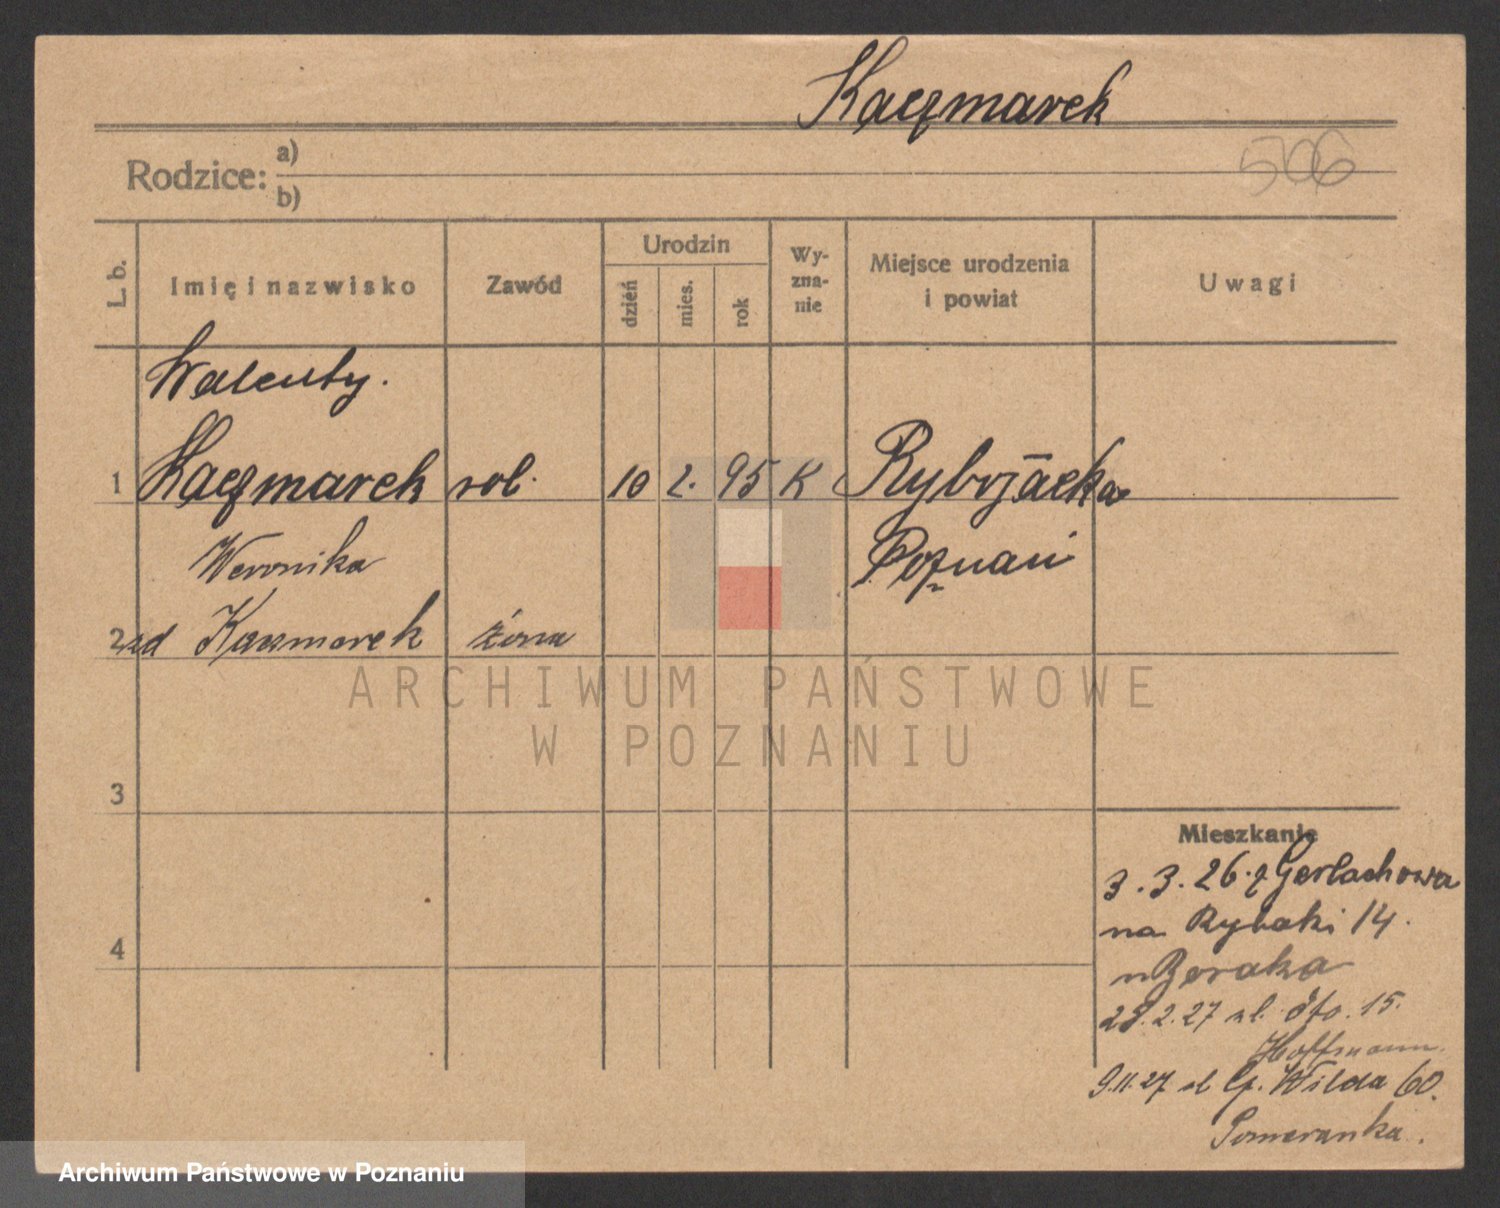 Kaczmarek
506
Rodzice: a)
b)
L. b.
Imię i nazwisko
Zawód
Urodzin
dzień
mies.
rok
Wy-
zna-
nie
Miejsce urodzenia
i powiat
Uwagi
Walenty.
1 Kaczmarek rob. 10 2. 95 K
Poznań
Weronika
2 Kaczmarek żona
ARCHIWUM PAŃSTWOWE
W POZNANIU
3
4
Mieszkanie
3.3.26. z Gerlachowa
na Rybaki 14.
23.2.27 ul. 15.
Hoffmann.
9.11.27 ul G. Wilda 60.
Pomeranka.
Archiwum Państwowe w Poznaniu